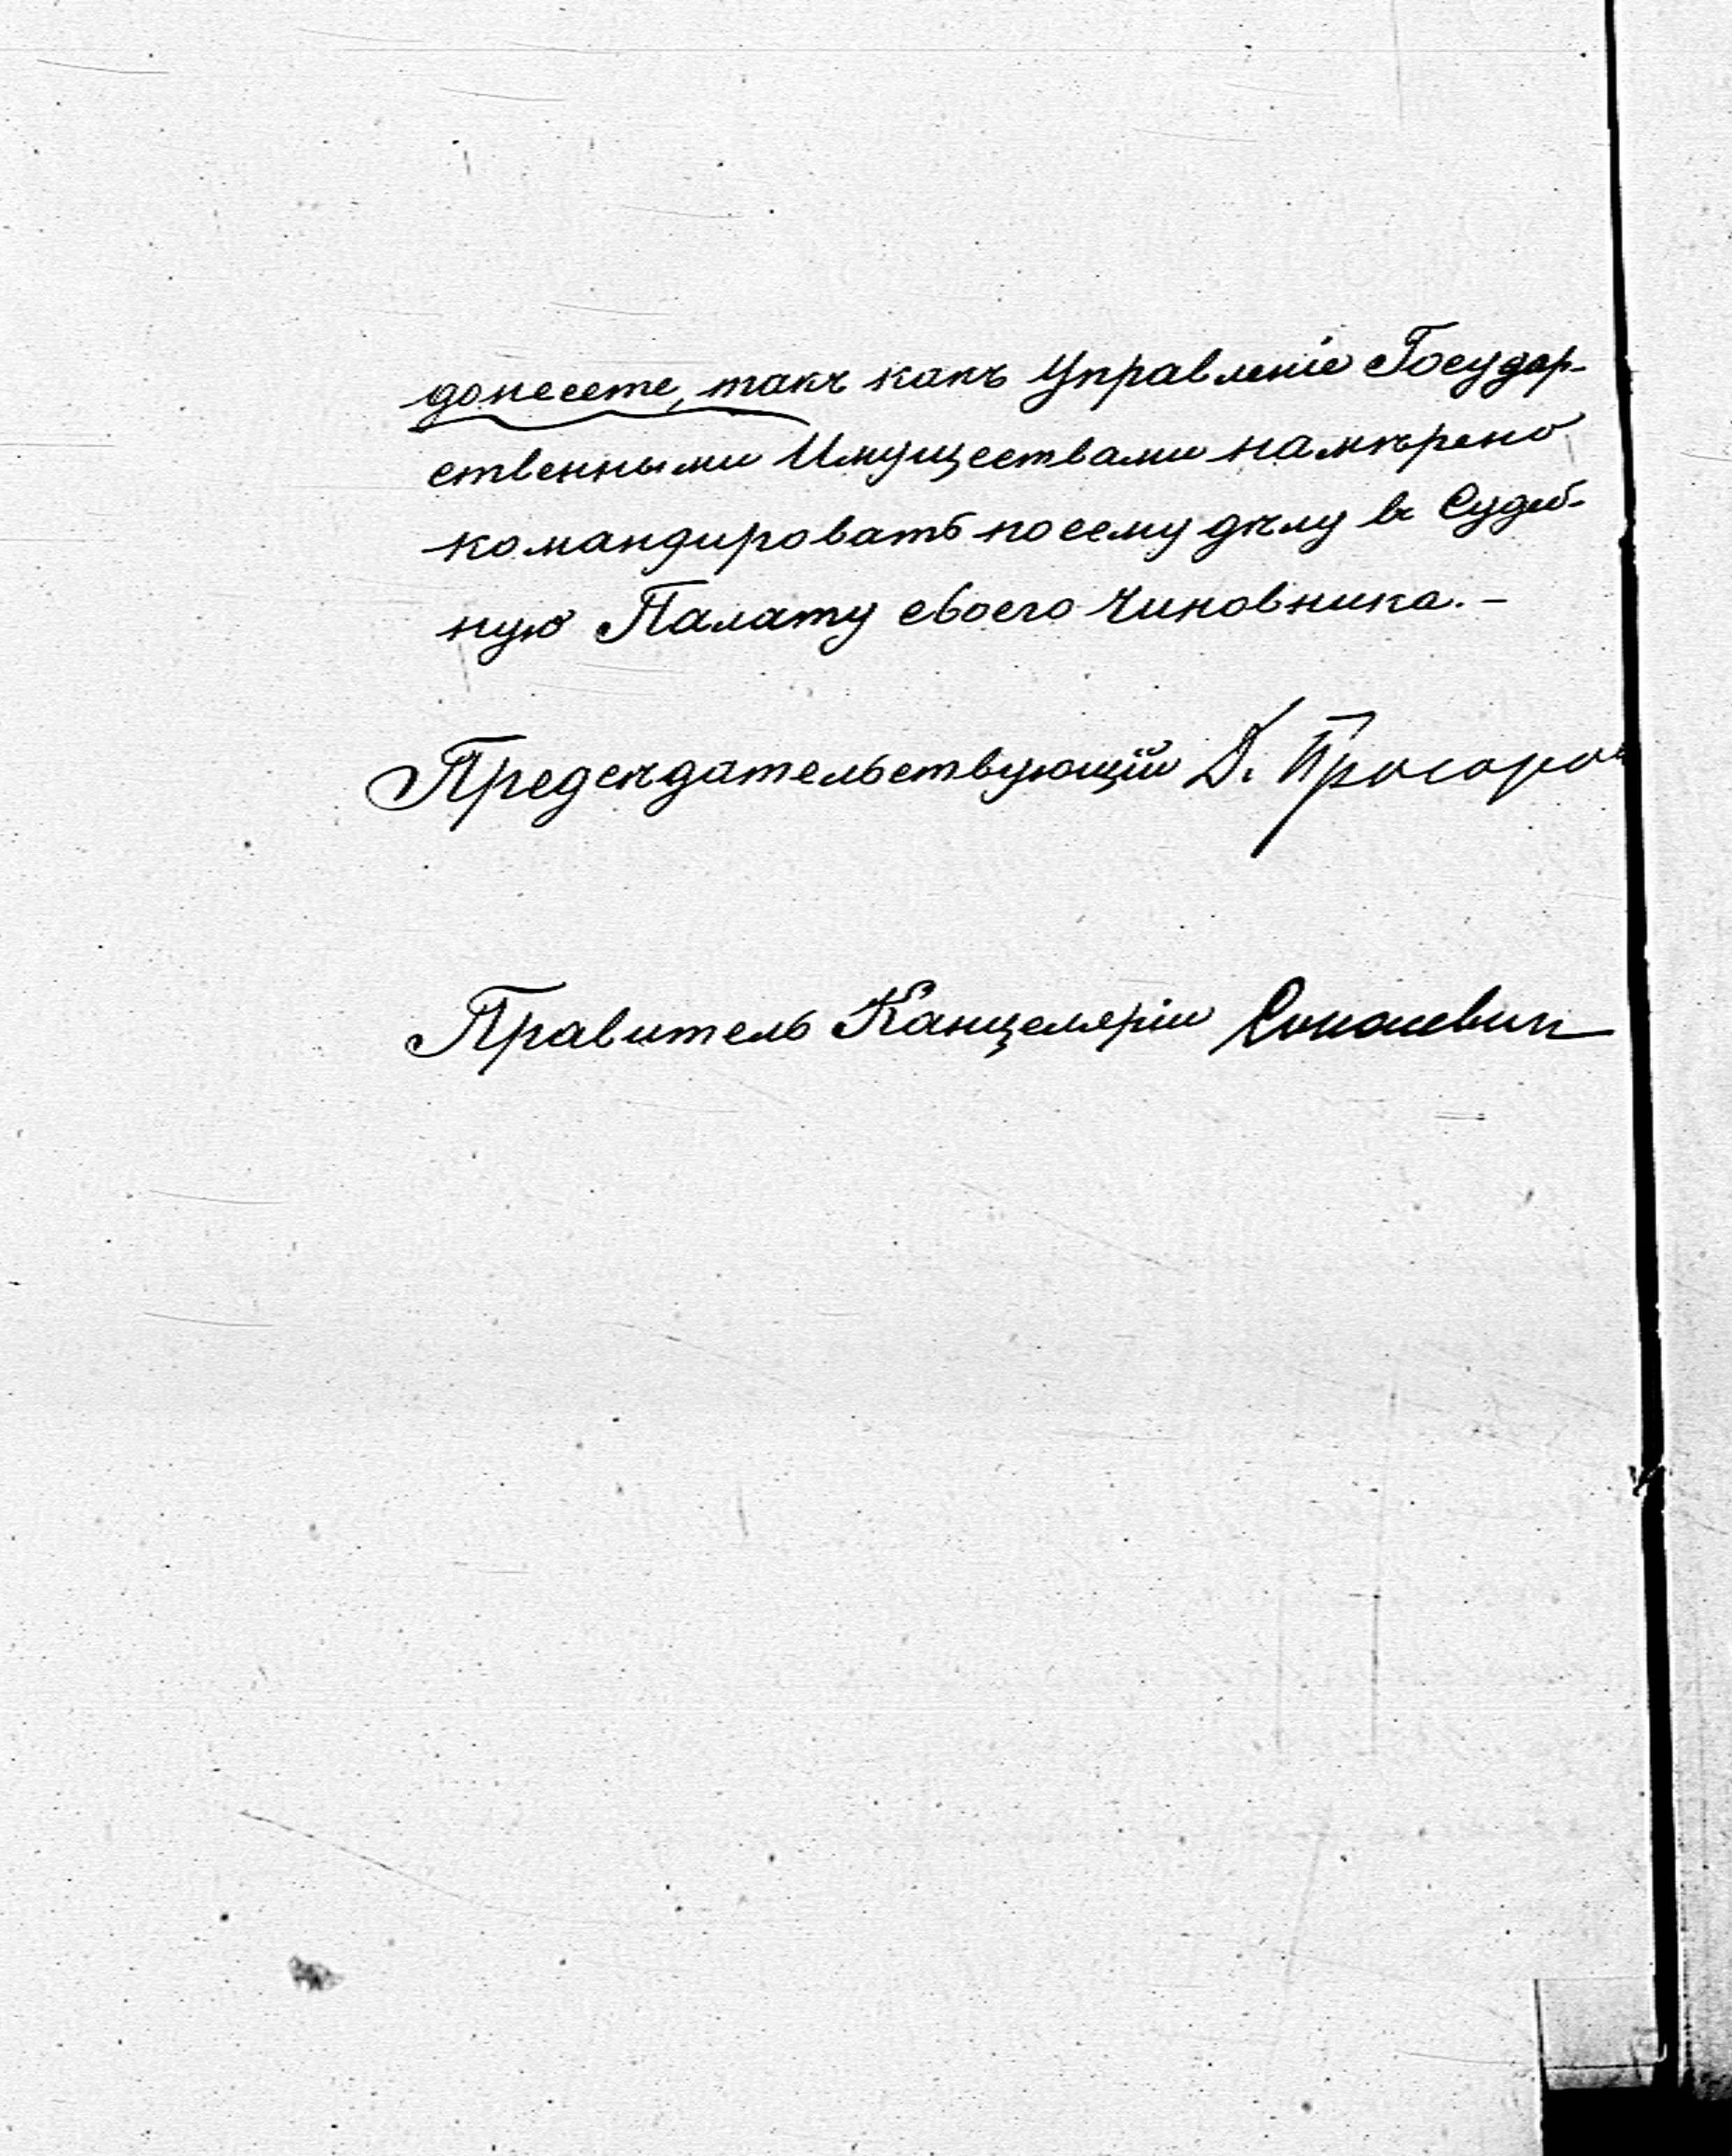 донесете, такъ какъ Управленіе Государ-
ственными Имуществами намѣрено
командировать по сему дѣлу въ Судеб-
ную Палату своего Чиновника. –
Предсѣдательствующій Д.
Правитель Канцеляріи